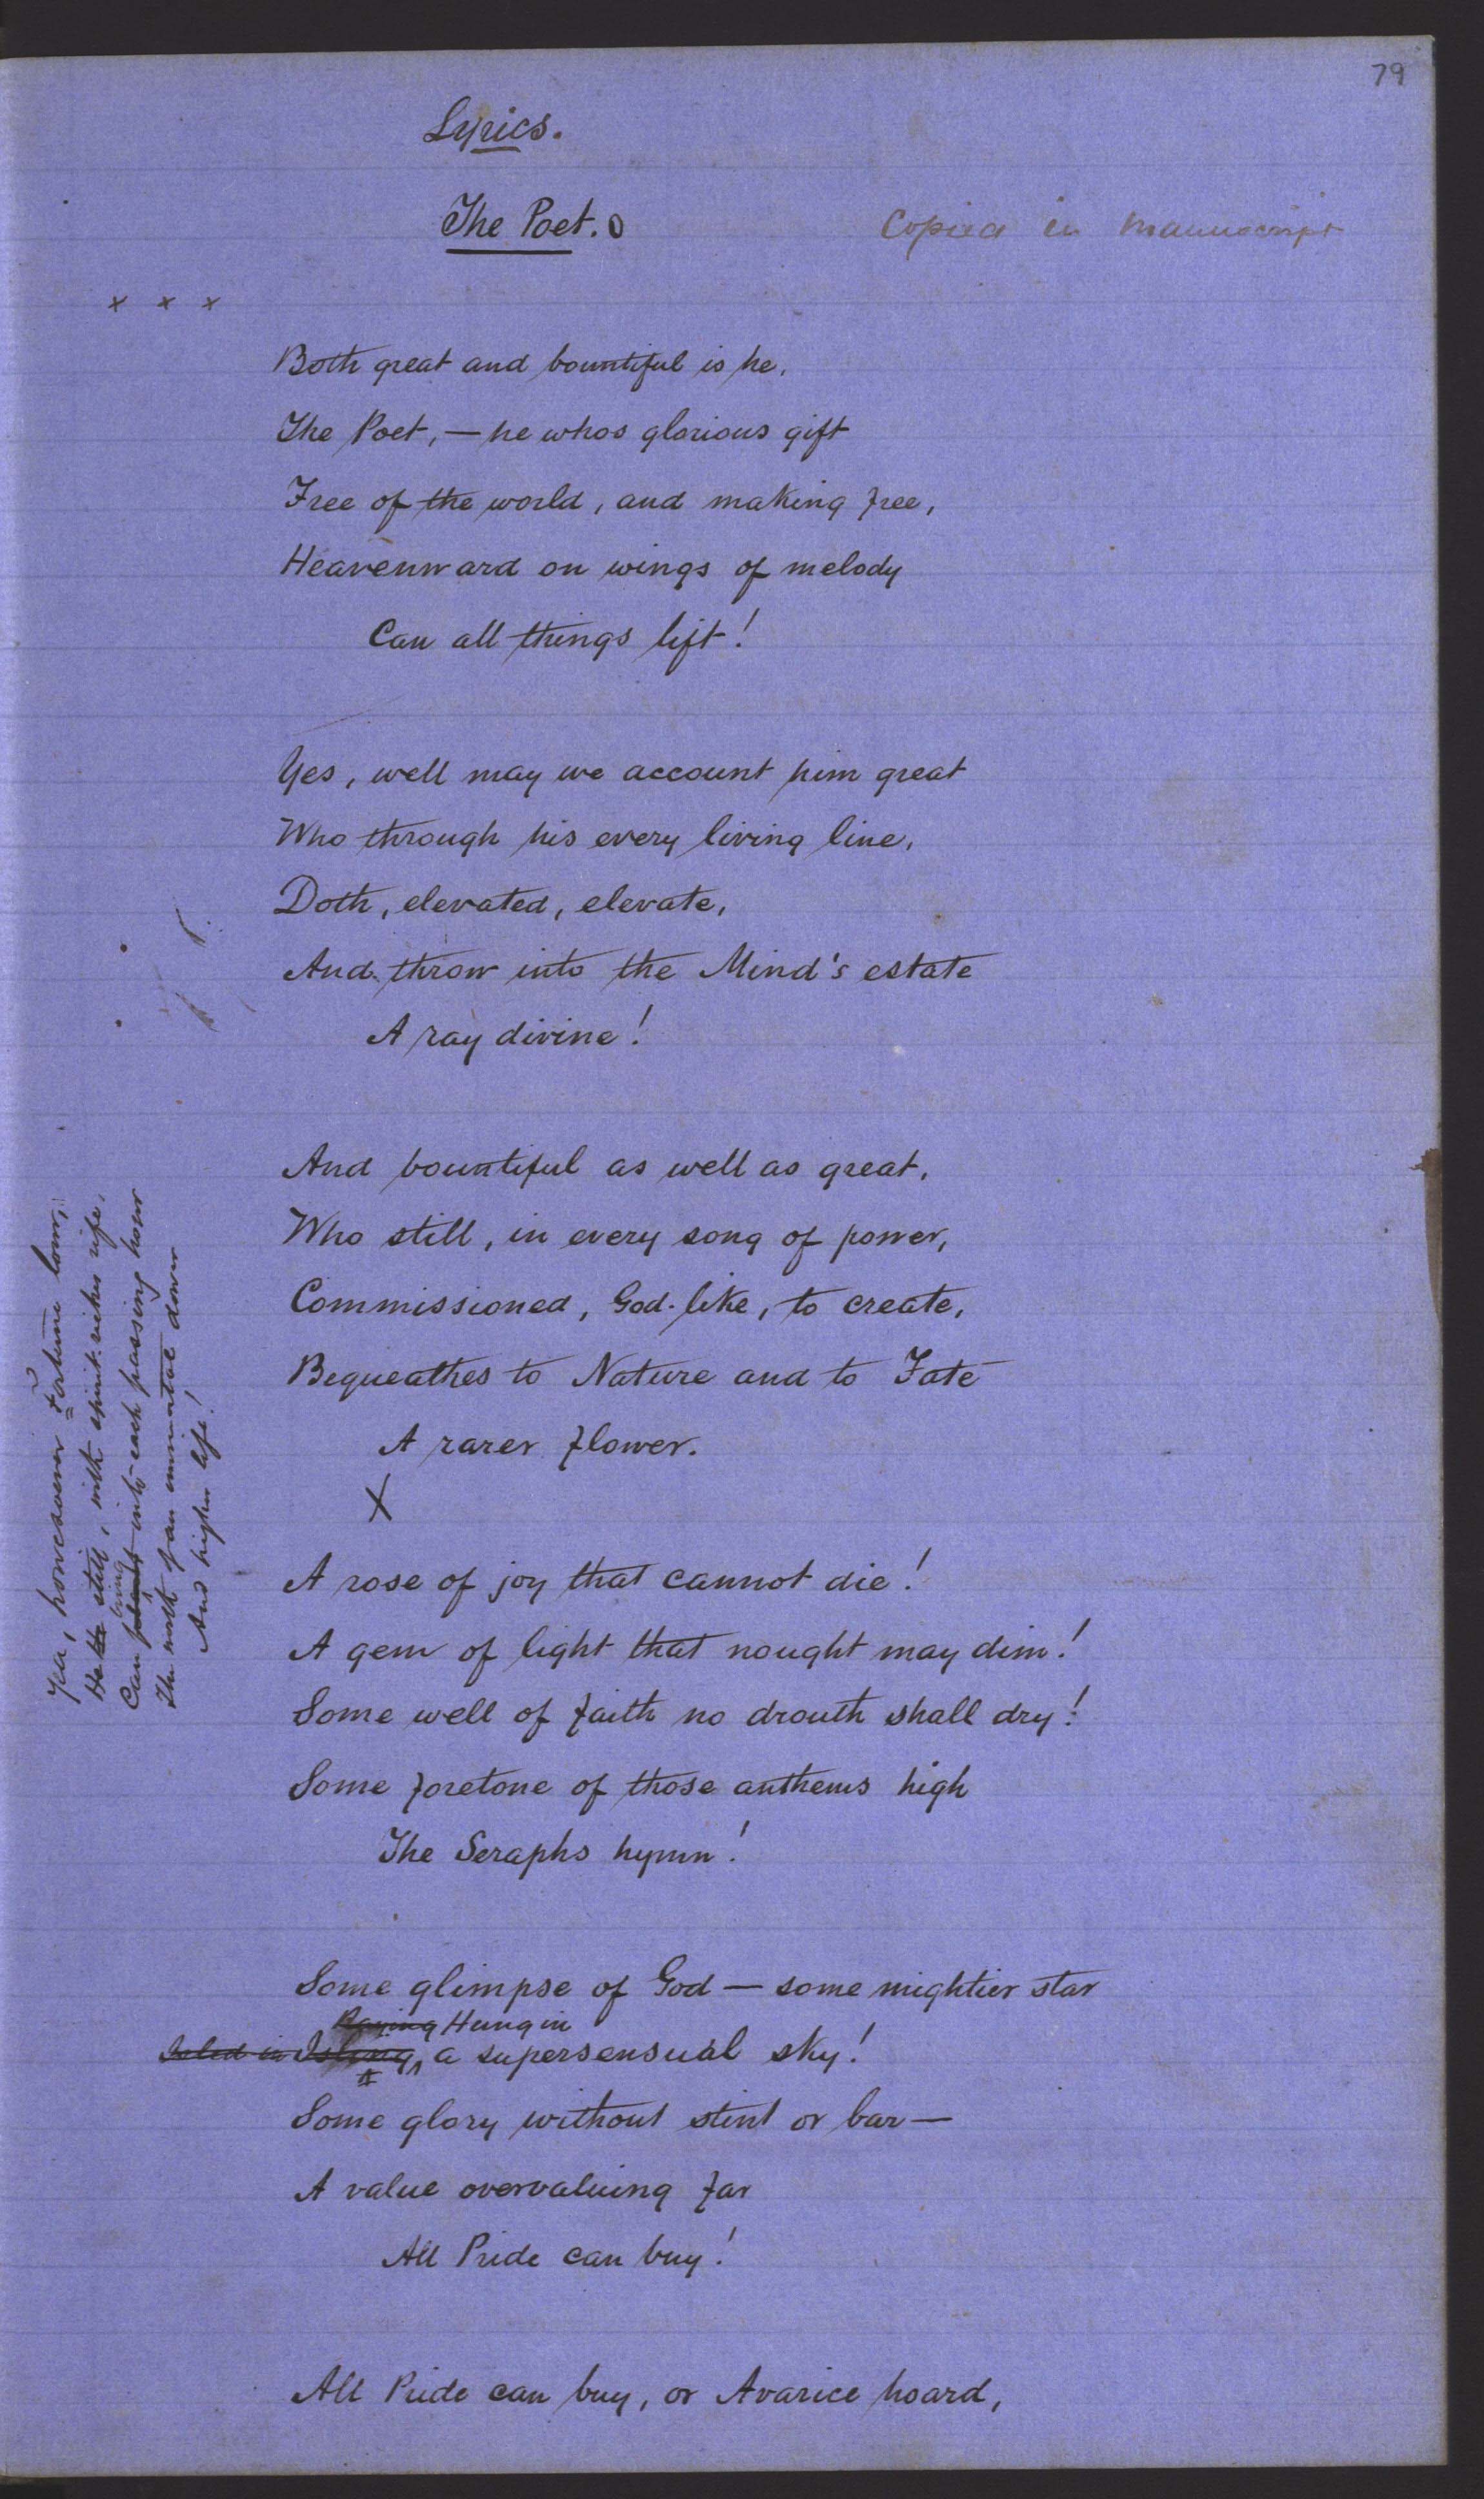 79
Lyrics.
The Poet. 0
Copied in manuscript
x x x
Both great and bountiful is he,
The Poet, — he whos glorious gift
Free of the world, and making free,
Heavenward on wings of melody
Can all things lift!
Yes, well may we account him great
Who through his every living line,
Doth, elevated, elevate,
And throw into the Mind's estate
A ray divine!
And bountiful as well as great,
Who still, in every song of power,
Commissioned, God-like, to create,
Bequeathes to Nature and to Fate
A rarer flower.
X
A rose of joy that cannot die!
A gem of light that nought may dim!
Some well of faith no drouth shall dry!
Some foretone of those anthems high
The Seraphs hymn!
Some glimpse of God — some mightier star
Raying Hung in
Isled in Isling a supersensual sky!
Some glory without stint or bar —
A value overvaluing far
All Pride can buy!
All Pride can buy, or Avarice hoard,
Yea, howesoever Fortune lour,
He still, with spirit-riches rife,
bring
Can into each passing hour
The worth of an immortal dower
And higher life!